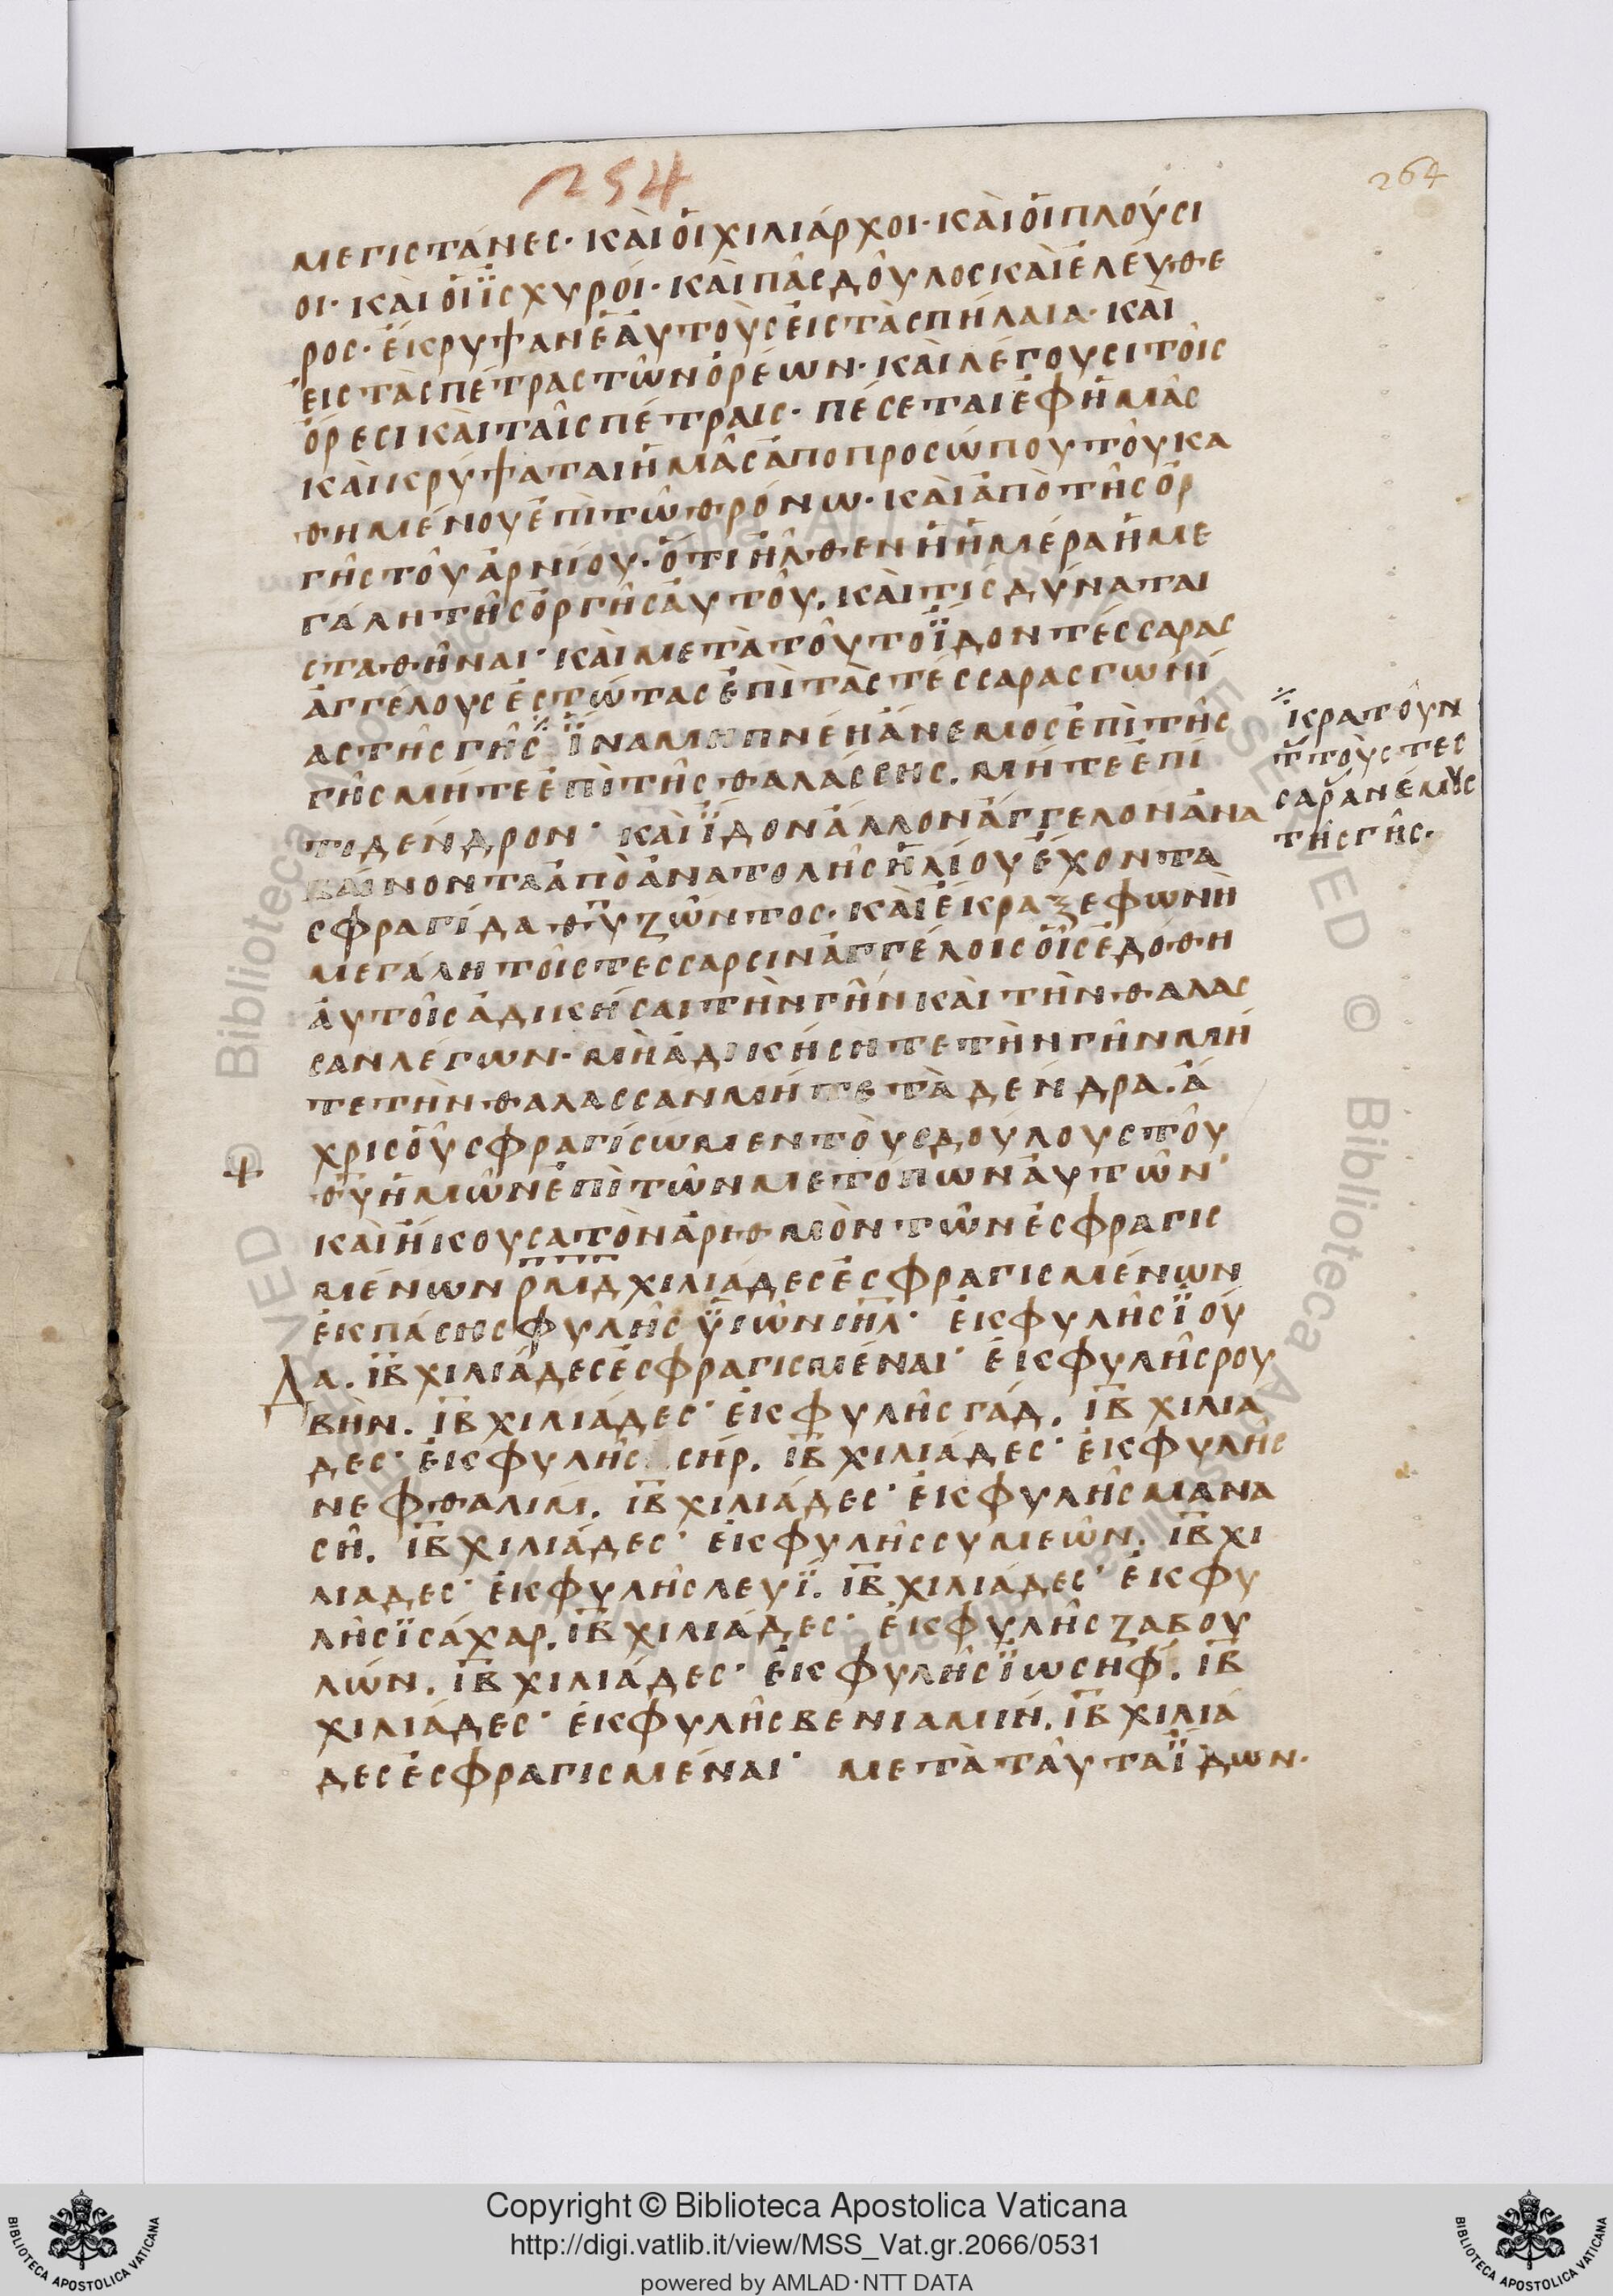 254
264
μεγιστάνες· καὶ ὁι χιλιάρχοι· καὶ ὁι πλούσι
οι· καὶ ὁι ϊσχυροί· καὶ πᾶς δοῦλος καὶ ἐλεύθε
ρος· ἔκρυψαν ἑαυτοὺς ἐις τὰ σπήλαια· καὶ
ἐις τὰς πέτρας τῶν ὀρέων· καὶ λέγουσι τοῖς
ὄρεσι καὶ ταῖς πέτραις· πέσεται ἐφ ἡμᾶς
καὶ κρύψαται ἡμᾶς ἀπο προσώπου τοῦ κα
θημένου ἐπὶ τῶ θρόνω· καὶ ἀπὸ τῆς ὀρ
γῆς τοῦ ἀρνίου· ὅτι ἦλθεν ἡ ἡμέρα ἡ με
γάλη τῆς ὀργῆς ἀυτοῦ. καὶ τίς δύναται
σταθῆναι· καὶ μετὰ τοῦτο ϊδον τέσσαρας
ἀγγέλους ἑστώτας ἐπὶ τὰς τέσσαρας γωνί
ας τῆς γῆς ϊνα μη πνέη ἄνεμος ἐπὶ τῆς
γῆς μήτε ἐπὶ τῆς θαλάσσης. μήτε ἐπί
το δένδρον· καὶ ϊδον ἄλλον ἄγγελον ἀνα
βαίνοντα ἀπὸ ἀνατολῆς ἡλίου ἔχοντα
σφραγίδα θ̅υ̅ ζῶντος· καὶ ἔκραξε φωνῆ
μεγάλη τοῖς τεσσαρσιν ἀγγέλοις οἷς ἐδόθη
ἀυτοῖς ἀδικήσαι τὴν γῆν καὶ τὴν θαλασ
σαν λέγων· μὴ ἀδικήσητε τὴν γῆν μή
τε τὴν θαλασσαν μήτε τὰ δένδρα. ἄ
χρις οὗ σφραγίσωμεν τοὺς δούλους τοῦ
θ̅υ̅ ἡμῶν ἐπὶ τῶν μετόπων ἀυτῶν·
καὶ ἤκουσα τὸν ἀριθμὸν τῶν ἐσφραγισ
μένων ρ̅μ̅δ̅ χιλιάδες ἐσφραγισμένων
ἐκ πάσης φυλῆς ϋιῶν ι̅η̅λ̅· ἐκ φυλῆς ϊού
Δα. ι̅β̅ χιλιάδες ἐσφραγισμέναι· ἐκ φυλῆς ρου
βὴν. ι̅β̅ χιλιάδες· ἐκ φυλῆς γάδ. ι̅β̅ χιλια
δες· ἐκ φυλῆς σήρ. ι̅β̅ χιλιάδες· ἐκ φυλῆς
νεφθαλίμ. ι̅β̅ χιλιάδες· ἐκ φυλῆς μανα
σῆ. ι̅β̅ χιλιάδες· ἐκ φυλῆς συμεῶν. ι̅β̅ χι
λιαδες· ἐκ φυλῆς λευϊ. ι̅β̅ χιλιάδες· ἐκ φυ
λῆς ϊσάχαρ. ι̅β̅ χιλιάδες· ἐκ φυλῆς ζαβου
λών. ι̅β̅ χιλιάδες· ἐκ φυλῆς ϊωσηφ. ι̅β̅
χιλιάδες· ἐκ φυλῆς βενιαμίν. ι̅β̅ χιλιά
δες ἐσφραγισμέναι· μετὰ ταῦτα ϊδων·
κρατοῦν
τ̅ τοὺς τεσ
σαρ ἀνέμους
τῆς γῆς.
Copyright © Biblioteca Apostolica Vaticana
http://digi.vatlib.it/view/MSS_Vat.gr.2066/0531
powered by AMLAD·NTT DATA
BIBLIOTECA APOSTOLICA VATICANA
BIBLIOTECA APOSTOLICA VATICANA